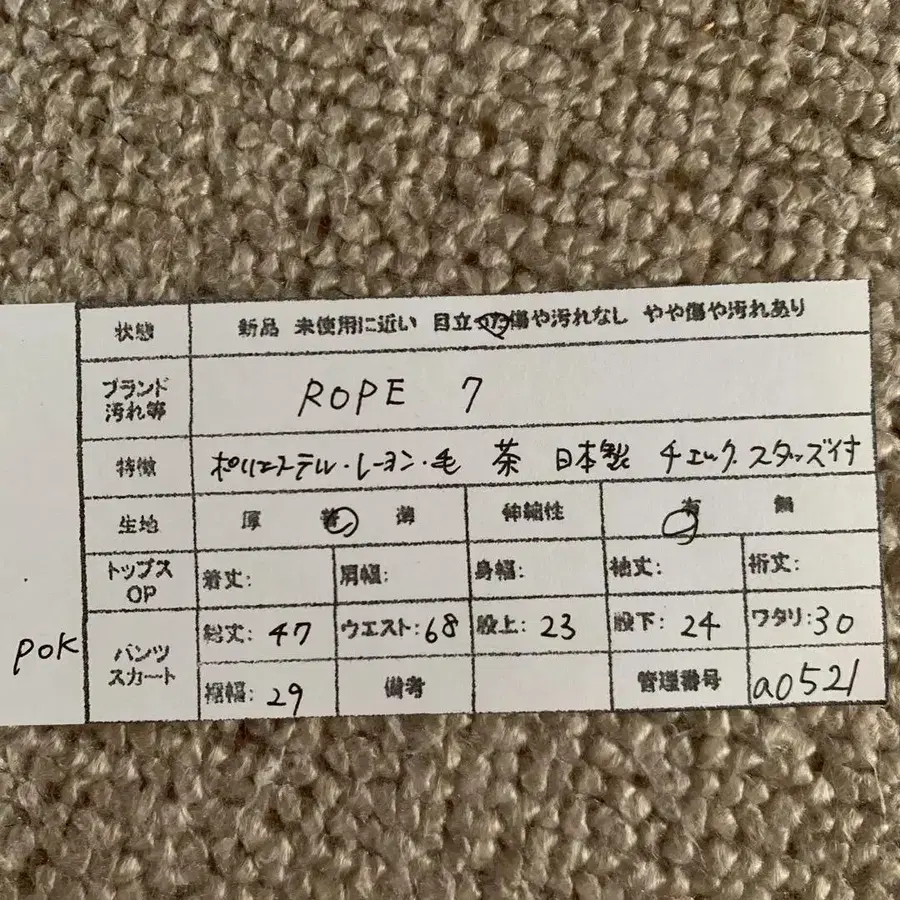 状態 新品 未使用に近い 目立った傷や汚れなし やや傷や汚れあり
ブランド
汚れ等
ROPE 7
特徴 ポリエステル・レーヨン・毛 茶 日本製 チェック スタッズ付
生地 厚 普 薄 伸縮性 有 無
トップス
OP
着丈: 肩幅: 身幅: 袖丈: 裄丈:
パンツ
スカート
総丈: 47 ウエスト: 68 股上: 23 股下: 24 ワタリ: 30
裾幅: 29 備考 管理番号 a0521
pok